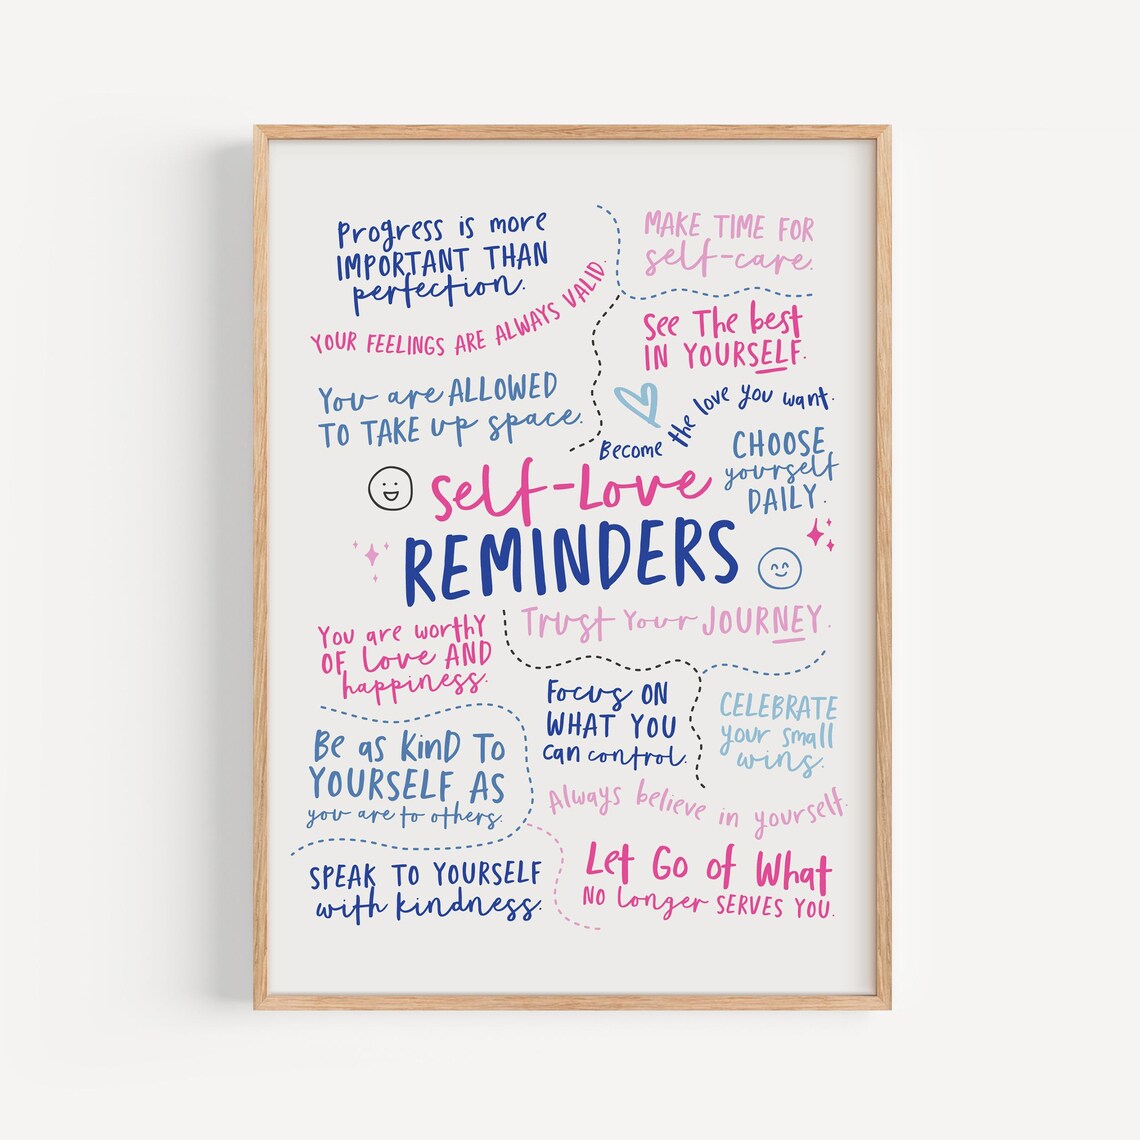 Progress is more
IMPORTANT THAN
perfection.
MAKE TIME FOR
self-care.
YOUR FEELINGS ARE ALWAYS VALID.
See The best
IN YOURSELF.
You are ALLOWED
TO TAKE up space.
Become the love you want.
CHOOSE
yourself
DAILY.
Self-Love
REMINDERS
Trust Your JOURNEY.
You are worthy
OF Love AND
happiness.
Focus ON
WHAT YOU
can control.
CELEBRATE
your small
wins.
Be as KinD TO
YOURSELF AS
you are to others.
Always believe in yourself.
SPEAK TO YOURSELF
with kindness.
Let Go of What
NO Longer SERVES YOU.